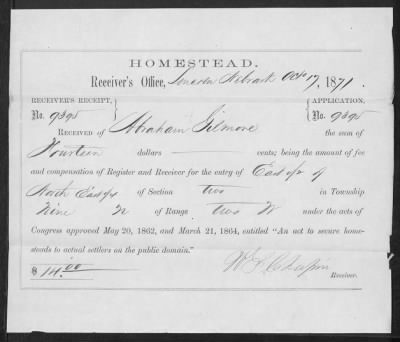 HOMESTEAD.
Receiver's Office, Lincoln Nebrask Octo 17, 1871.
RECEIVER'S RECEIPT, APPLICATION,
No. 9395 No. 9395
RECEIVED OF Abraham Gilmore the sum of
Fourteen dollars cents; being the amount of fee
and compensation of Register and Receiver for the entry of East ½ of
North East ¼ of Section two in Township
Nine N of Range two W under the acts of
Congress approved May 20, 1862, and March 21, 1864, entitled "An act to secure home-
steads to actual settlers on the public domain."
$ 14.00
Receiver.